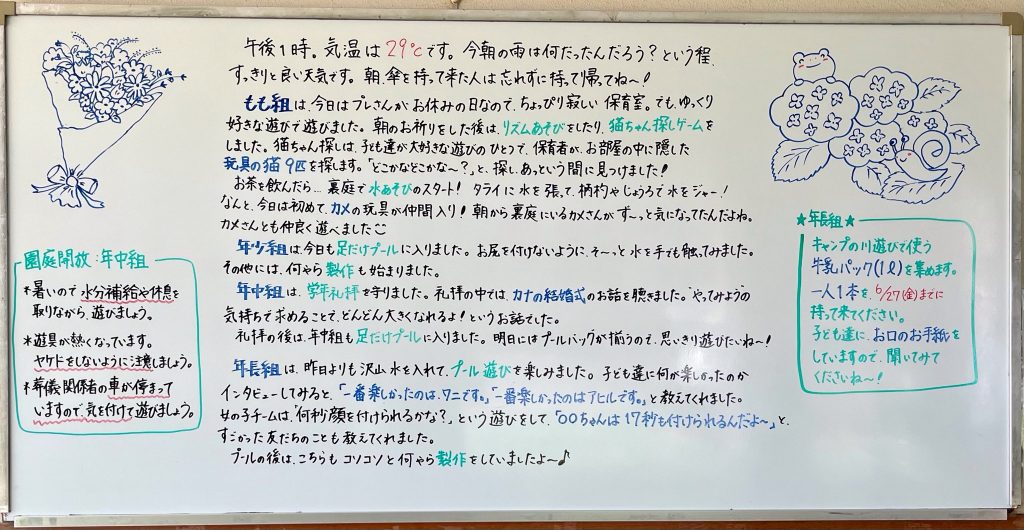 午後1時。気温は29℃です。今朝の雨は何だったんだろう？という程、
すっきりと良い天気です。朝、傘を持って来た人は忘れずに持って帰ってね〜！
もも組は、今日はプレさんがお休みの日なので、ちょっぴり寂しい保育室。でも、ゆっくり
好きな遊びで遊びました。朝のお祈りをした後は、リズムあそびをしたり、猫ちゃん探しゲームを
しました。猫ちゃん探しは、子ども達が大好きな遊びのひとつで、保育者が、お部屋の中に隠した
玩具の猫9匹を探します。「どこかなどこかな〜？」と、探し、あっという間に見つけました！
お茶を飲んだら…裏庭で水あそびのスタート！タライに水を張って、柄杓やじょうろで水をジャー！
なんと、今日は初めて、カメの玩具が仲間入り！朝から裏庭にいるカメさんがず〜っと気になってたんだよね。
カメさんとも仲良く遊べました
年少組は、今日も足だけプールに入りました。お尻を付けないように、そ〜っと水を手でも触ってみました。
その他には、何やら製作も始まりました。
年中組は、学年礼拝を守りました。礼拝の中では、カナの結婚式のお話を聴きました。"やってみようの
気持ちで求めることで、どんどん大きくなれるよ！というお話でした。
礼拝の後は、年中組も足だけプールに入りました。明日にはプールバッグが揃うので、思いきり遊びたいね〜！
年長組は、昨日よりも沢山水を入れて、プール遊びを楽しみました。子ども達に何が楽しかったのか
インタビューしてみると、「一番楽しかったのは、ワニです。」「一番楽しかったのはアヒルです。」と教えてくれました。
女の子チームは、「何秒顔を付けられるかな？」という遊びをして、「〇〇ちゃんは17秒も付けられるんだよ〜」と、
すごかった友だちのことも教えてくれました。
プールの後は、こちらもコソコソと何やら製作をしていましたよ〜♪
園庭開放：年中組
*暑いので水分補給や休息を
取りながら、遊びましょう。
*遊具が熱くなっています。
ヤケドをしないように注意しましょう。
*葬儀関係者の車が停まって
いますので気を付けて遊びましょう。
★年長組★
キャンプの川遊びで使う
牛乳パック(1ℓ)を集めます。
一人1本を、6/27(金)までに
持って来てください。
子ども達に、お口のお手紙を
していますので、聞いてみて
くださいね〜！